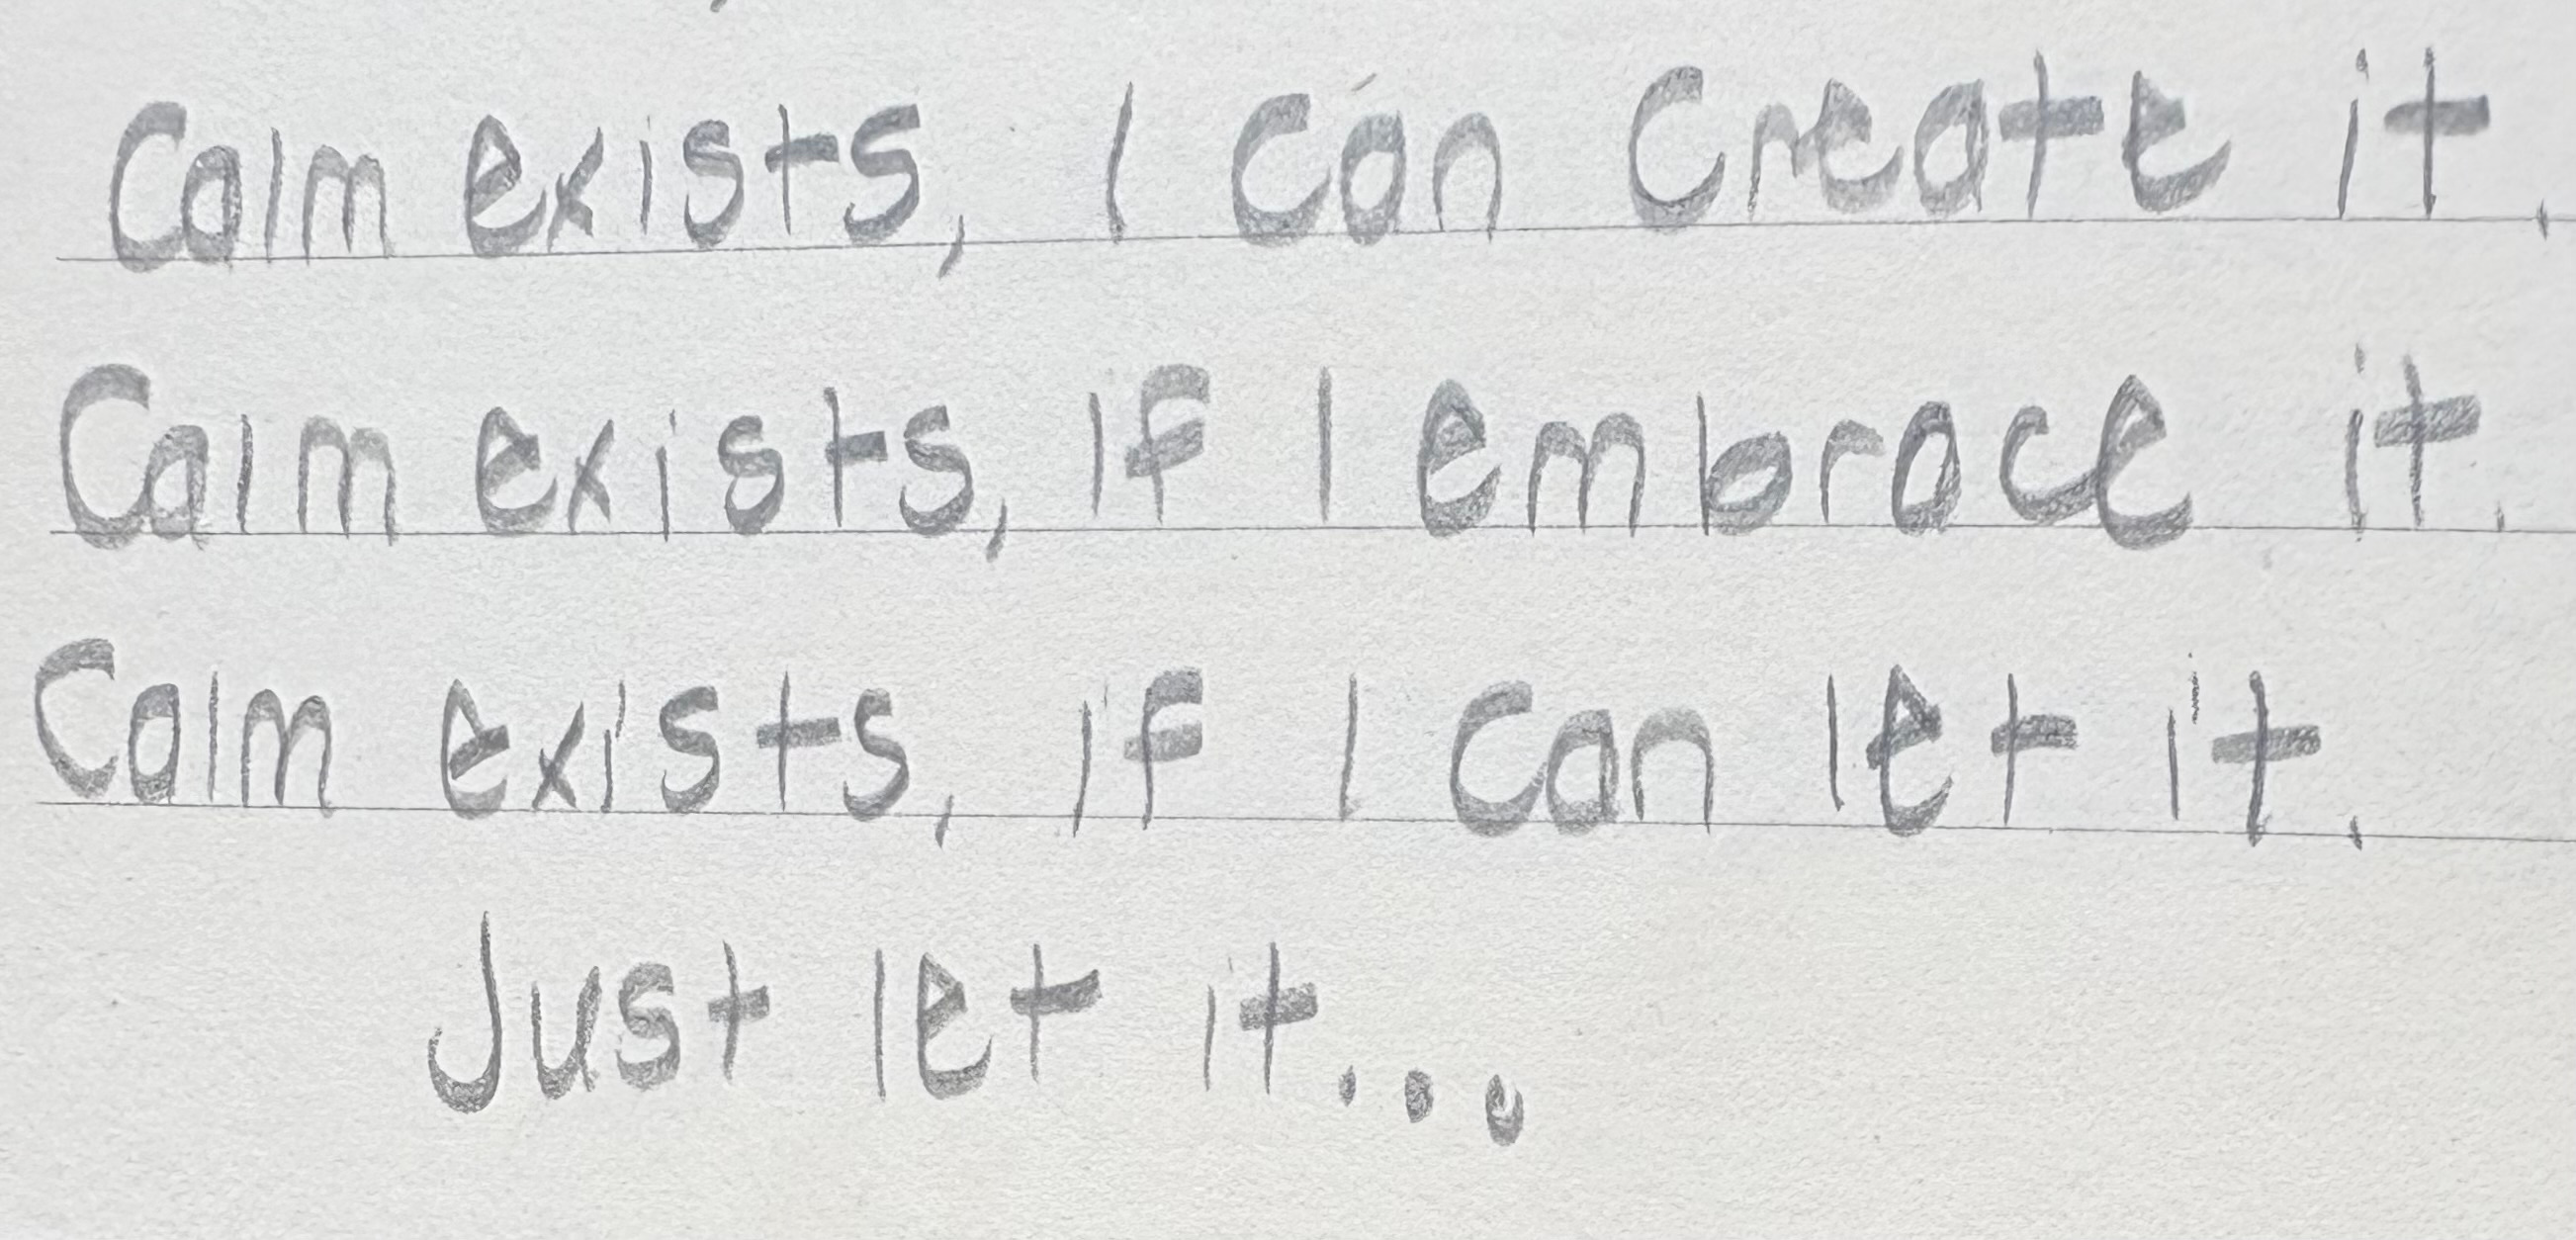 Calm exists, I can create it.
Calm exists, if I embrace it.
Calm exists, if I can let it.
Just let it...